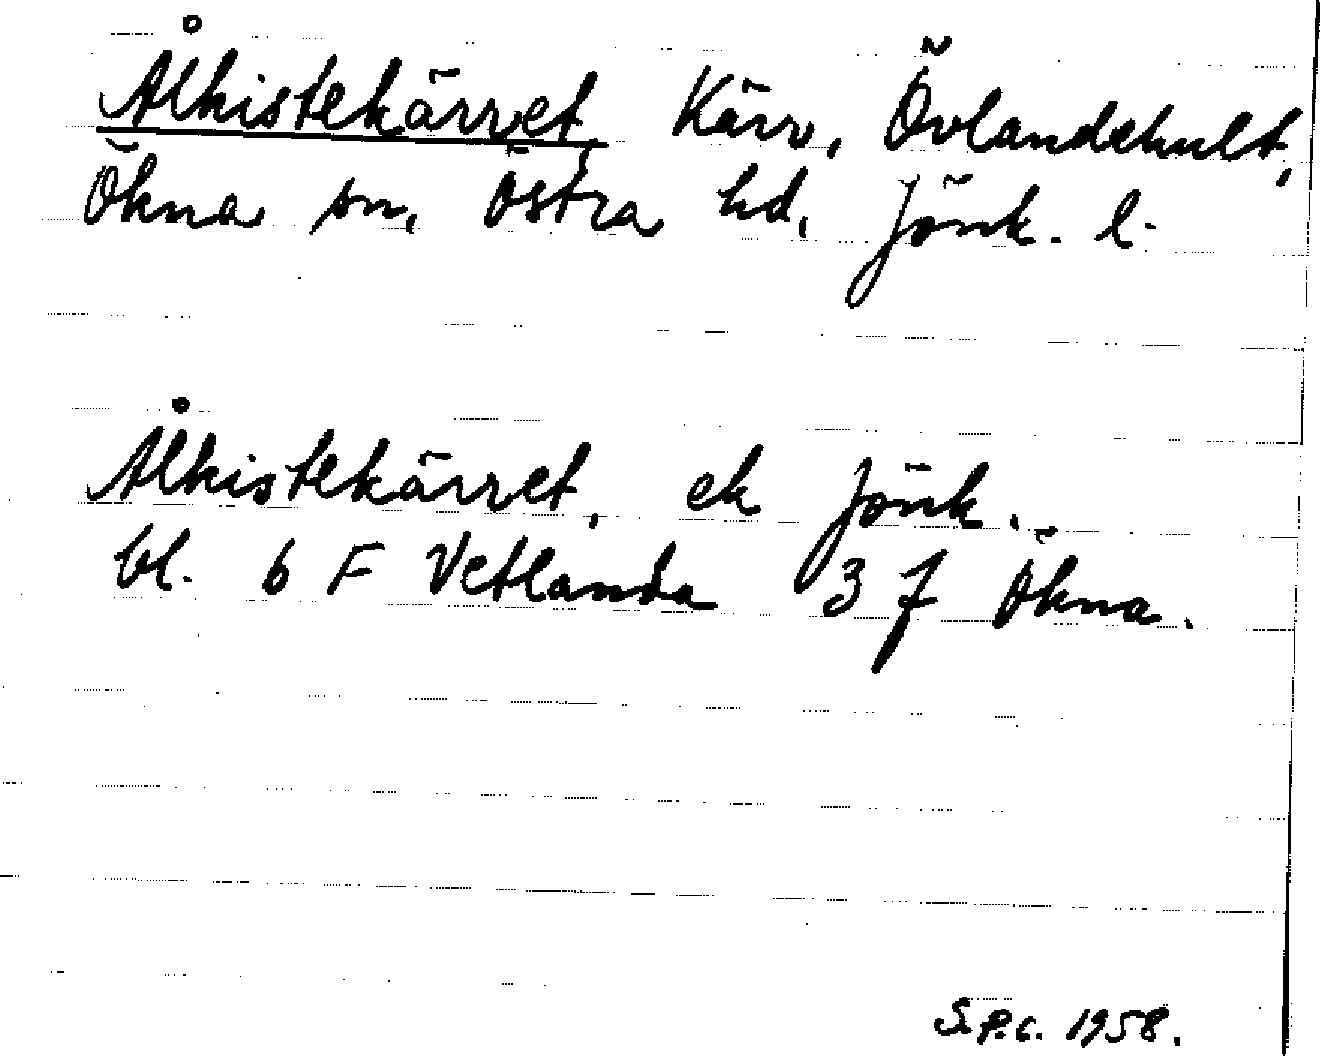 Ålkistekärret Kärr, Övlandehult,
Ökna sn, Östra hd, Jönk. l.
Ålkistekärret, ek Jönk.
bl. 6 F Vetlanda 3 f Ökna.
S.P.C. 1958.